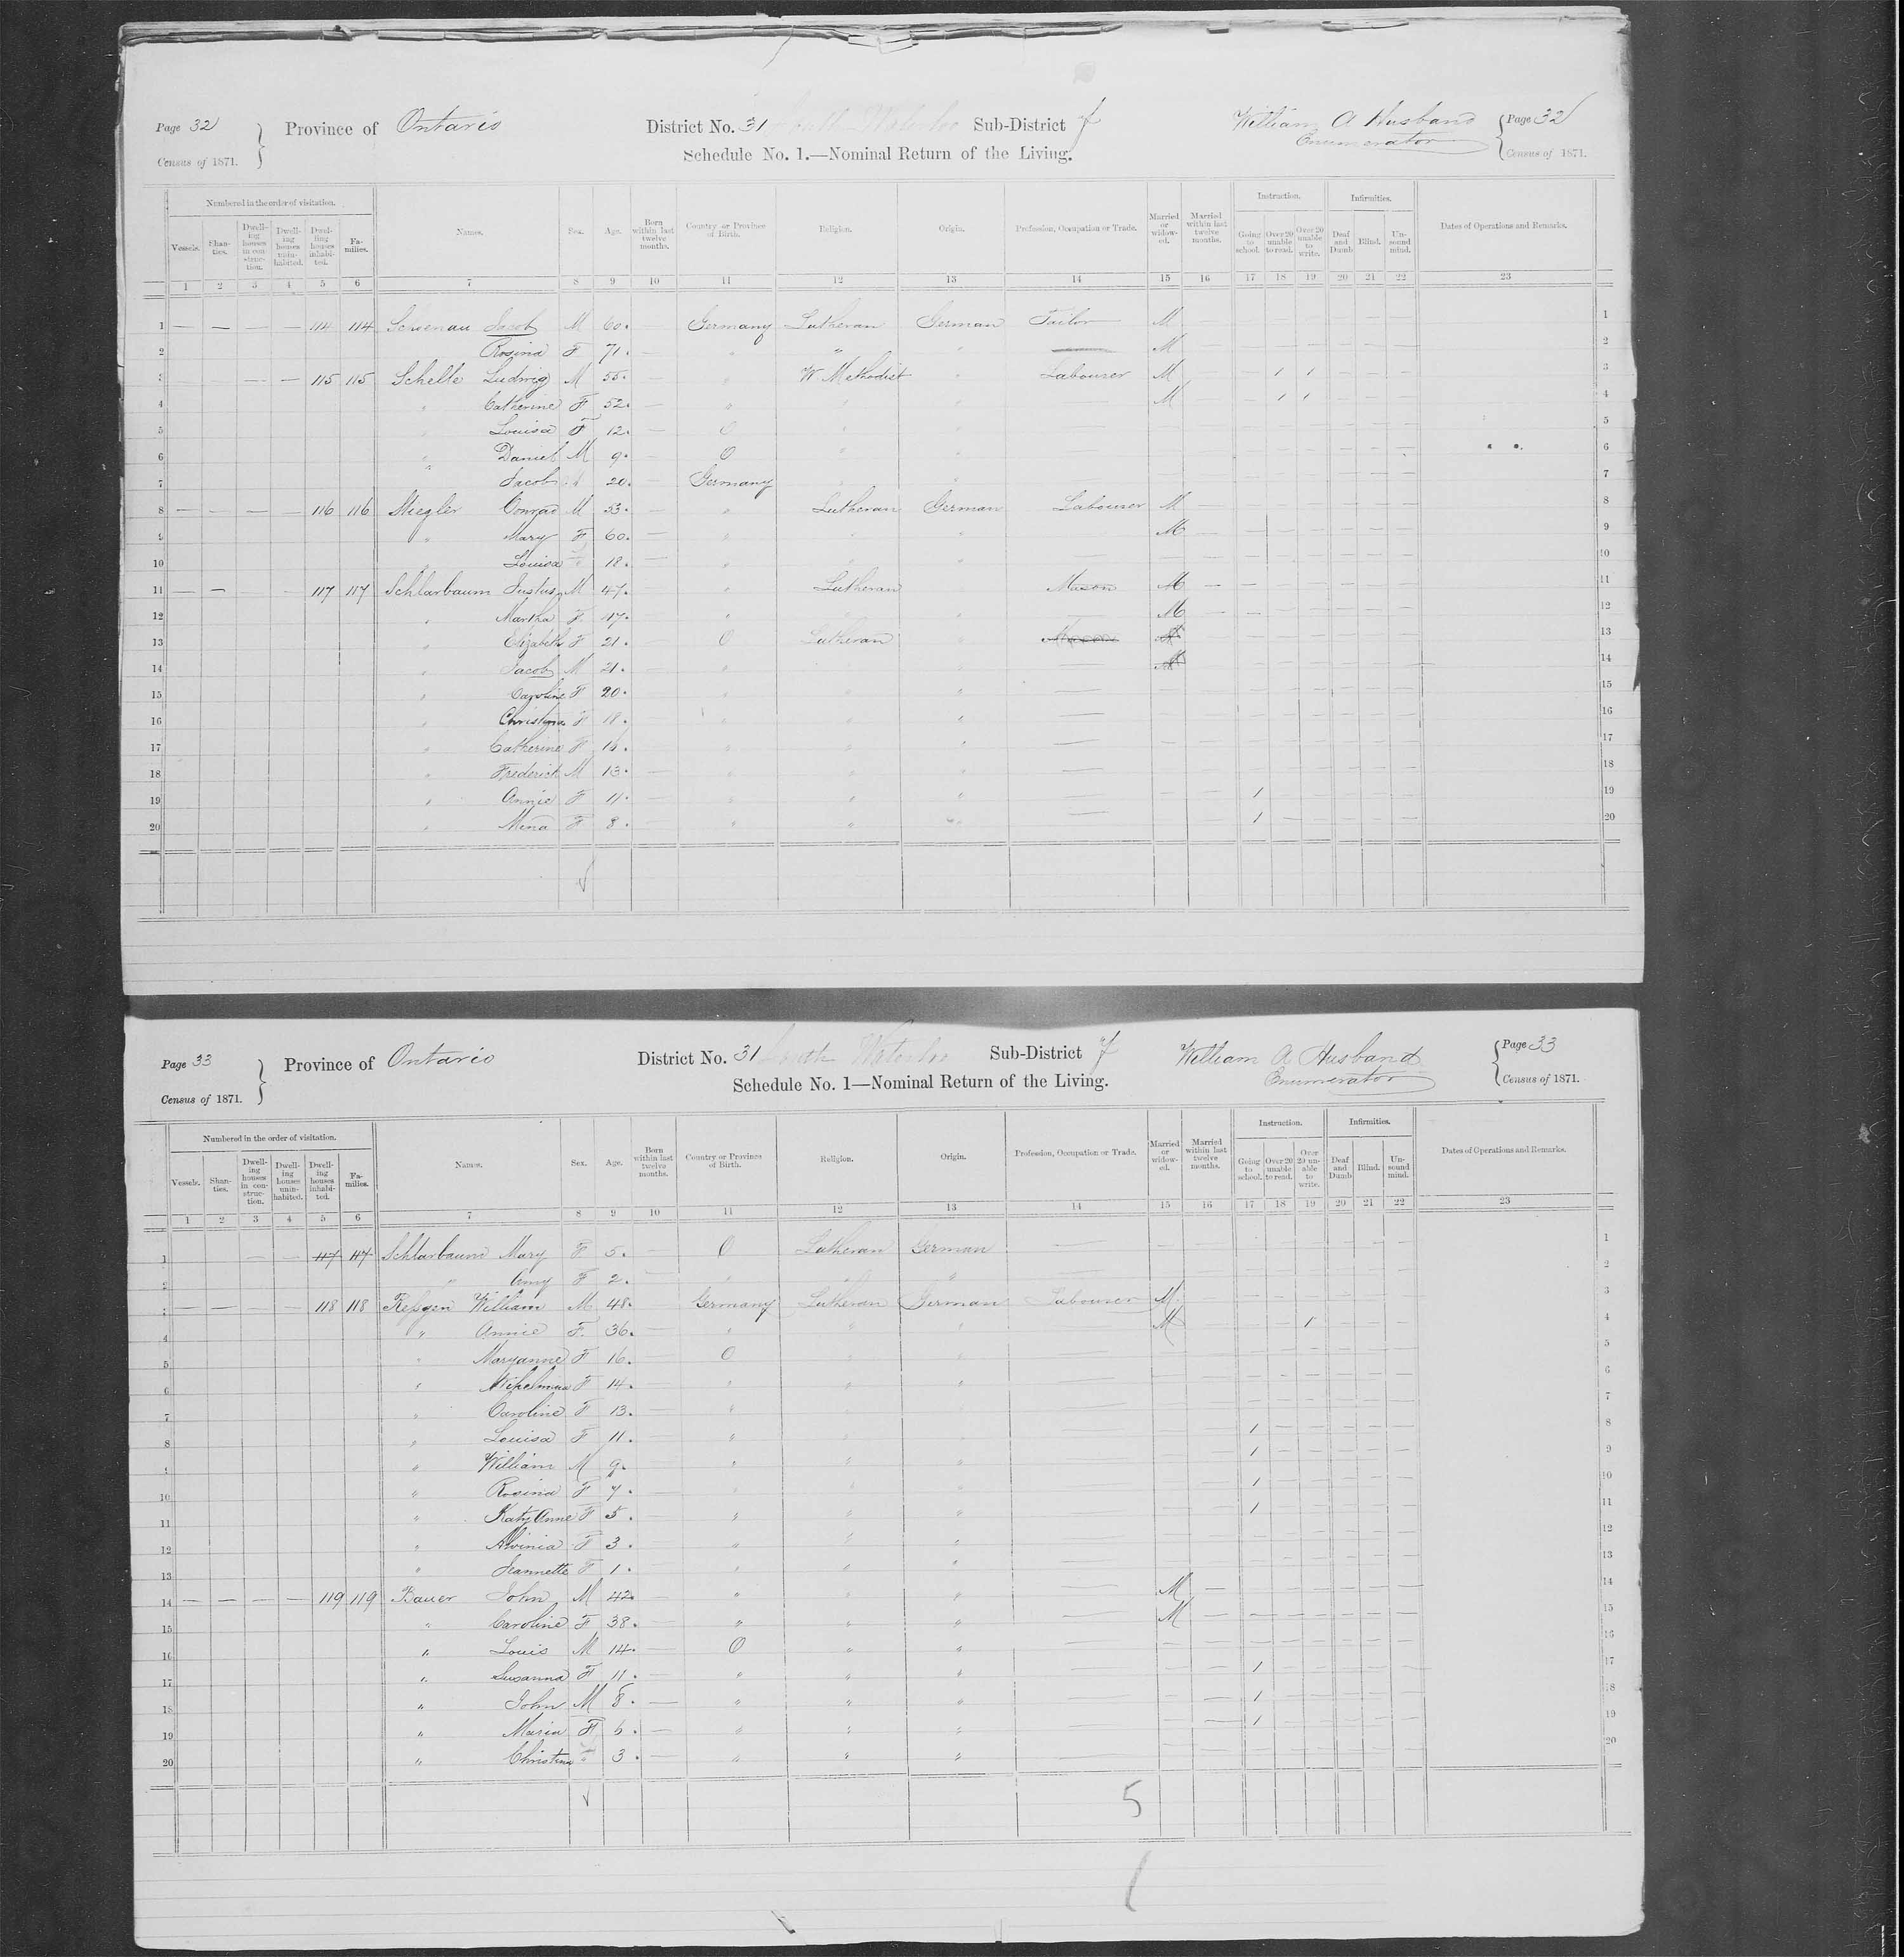 Page 32 Province of Ontario District No. 31 South Waterloo Sub-District f William A Husband Page 32
Census of 1871. Schedule No. 1.—Nominal Return of the Living. Enumerator Census of 1871.
Numbered in the order of visitation. Instruction. Infirmities.
Vessels. Shanties. Dwelling houses in construction. Dwelling houses uninhabited. Dwelling houses inhabited. Families. Names. Sex. Age. Born within last twelve months. Country or Province of Birth. Religion. Origin. Profession, Occupation or Trade. Married or widowed. Married within last twelve months. Going to school. Over 20 unable to read. Over 20 unable to write. Deaf and Dumb Blind. Unsound mind. Dates of Operations and Remarks.
1 2 3 4 5 6 7 8 9 10 11 12 13 14 15 16 17 18 19 20 21 22 23
1 — — — — 114 114 Schoenau Jacob M 60. — Germany Lutheran German Tailor M 1
2 Rosina F 71. — " " " — M 2
3 — — 115 115 Schelle Ludwig M 55. — " W. Methodist " Labourer M 1 1 3
4 " Catherine F 52. — " " " — M 1 1 4
5 " Louisa F 12. — O " " — 5
6 " Daniel M 9. — O " " — 6
7 " Jacob M 20. — Germany " " 7
8 — — — — 116 116 Stiegler Conrad M 53. — " Lutheran German Labourer M 8
9 " Mary F 60. — " " " M 9
10 " Louisa F 18. — " " " — 10
11 — — — 117 117 Schlarbaum Justus M 47. " Lutheran " Mason M 11
12 " Martha F 47. " " " — M 12
13 " Elizabeth F 21. O Lutheran " Mason M 13
14 " Jacob M 21. " " " M 14
15 " Caroline F 20. " " " — 15
16 " Christina F 18. " " " — 16
17 " Catherine F 16. " " " — 17
18 " Frederick M 13. " " " — 18
19 " Annie F 11. " " " — 1 19
20 " Mena F 8. " " " — 1 20
Page 33 Province of Ontario District No. 31 South Waterloo Sub-District f William A Husband Page 33
Census of 1871. Schedule No. 1—Nominal Return of the Living. Enumerator Census of 1871.
Numbered in the order of visitation. Instruction. Infirmities.
Vessels. Shanties. Dwelling houses in construction. Dwelling houses uninhabited. Dwelling houses inhabited. Families. Names. Sex. Age. Born within last twelve months. Country or Province of Birth. Religion. Origin. Profession, Occupation or Trade. Married or widowed. Married within last twelve months. Going to school. Over 20 unable to read. Over 20 unable to write. Deaf and Dumb Blind. Unsound mind. Dates of Operations and Remarks.
1 2 3 4 5 6 7 8 9 10 11 12 13 14 15 16 17 18 19 20 21 22 23
1 — — 117 117 Schlarbaum Mary F 5. — O Lutheran German — 1
2 " Amy F 2. — " " " — 2
— — — — 118 118 William M 48. — Germany Lutheran German Labourer M 3
4 " Annie F. 36. — " " " — M 1 4
5 " Maryanne F 16. — O " " — 5
6 " F 14. — " " " — 6
7 " Caroline F 13. — " " " — 7
8 " Louisa F 11. — " " " — 1 8
9 " William M 9. — " " " — 1 9
10 " Rosina F 7. — " " " — 1 10
11 " Katy Anne F 5. — " " " — 1 11
12 " Alvinia F 3. — " " " — 12
13 " Jeannette F 1. — " " " — 13
14 — — — — 119 119 Bauer John M 42. — " " " M — 14
15 " Caroline F 38. — " " " — M 15
16 " Louis M 14. — O " " — 16
17 " Susanna F 11. — " " " — 1 17
18 " John M 8. — " " " — 1 18
19 " Maria F 6. — " " " — 1 19
20 " Christina F 3. — " " " — 20
5